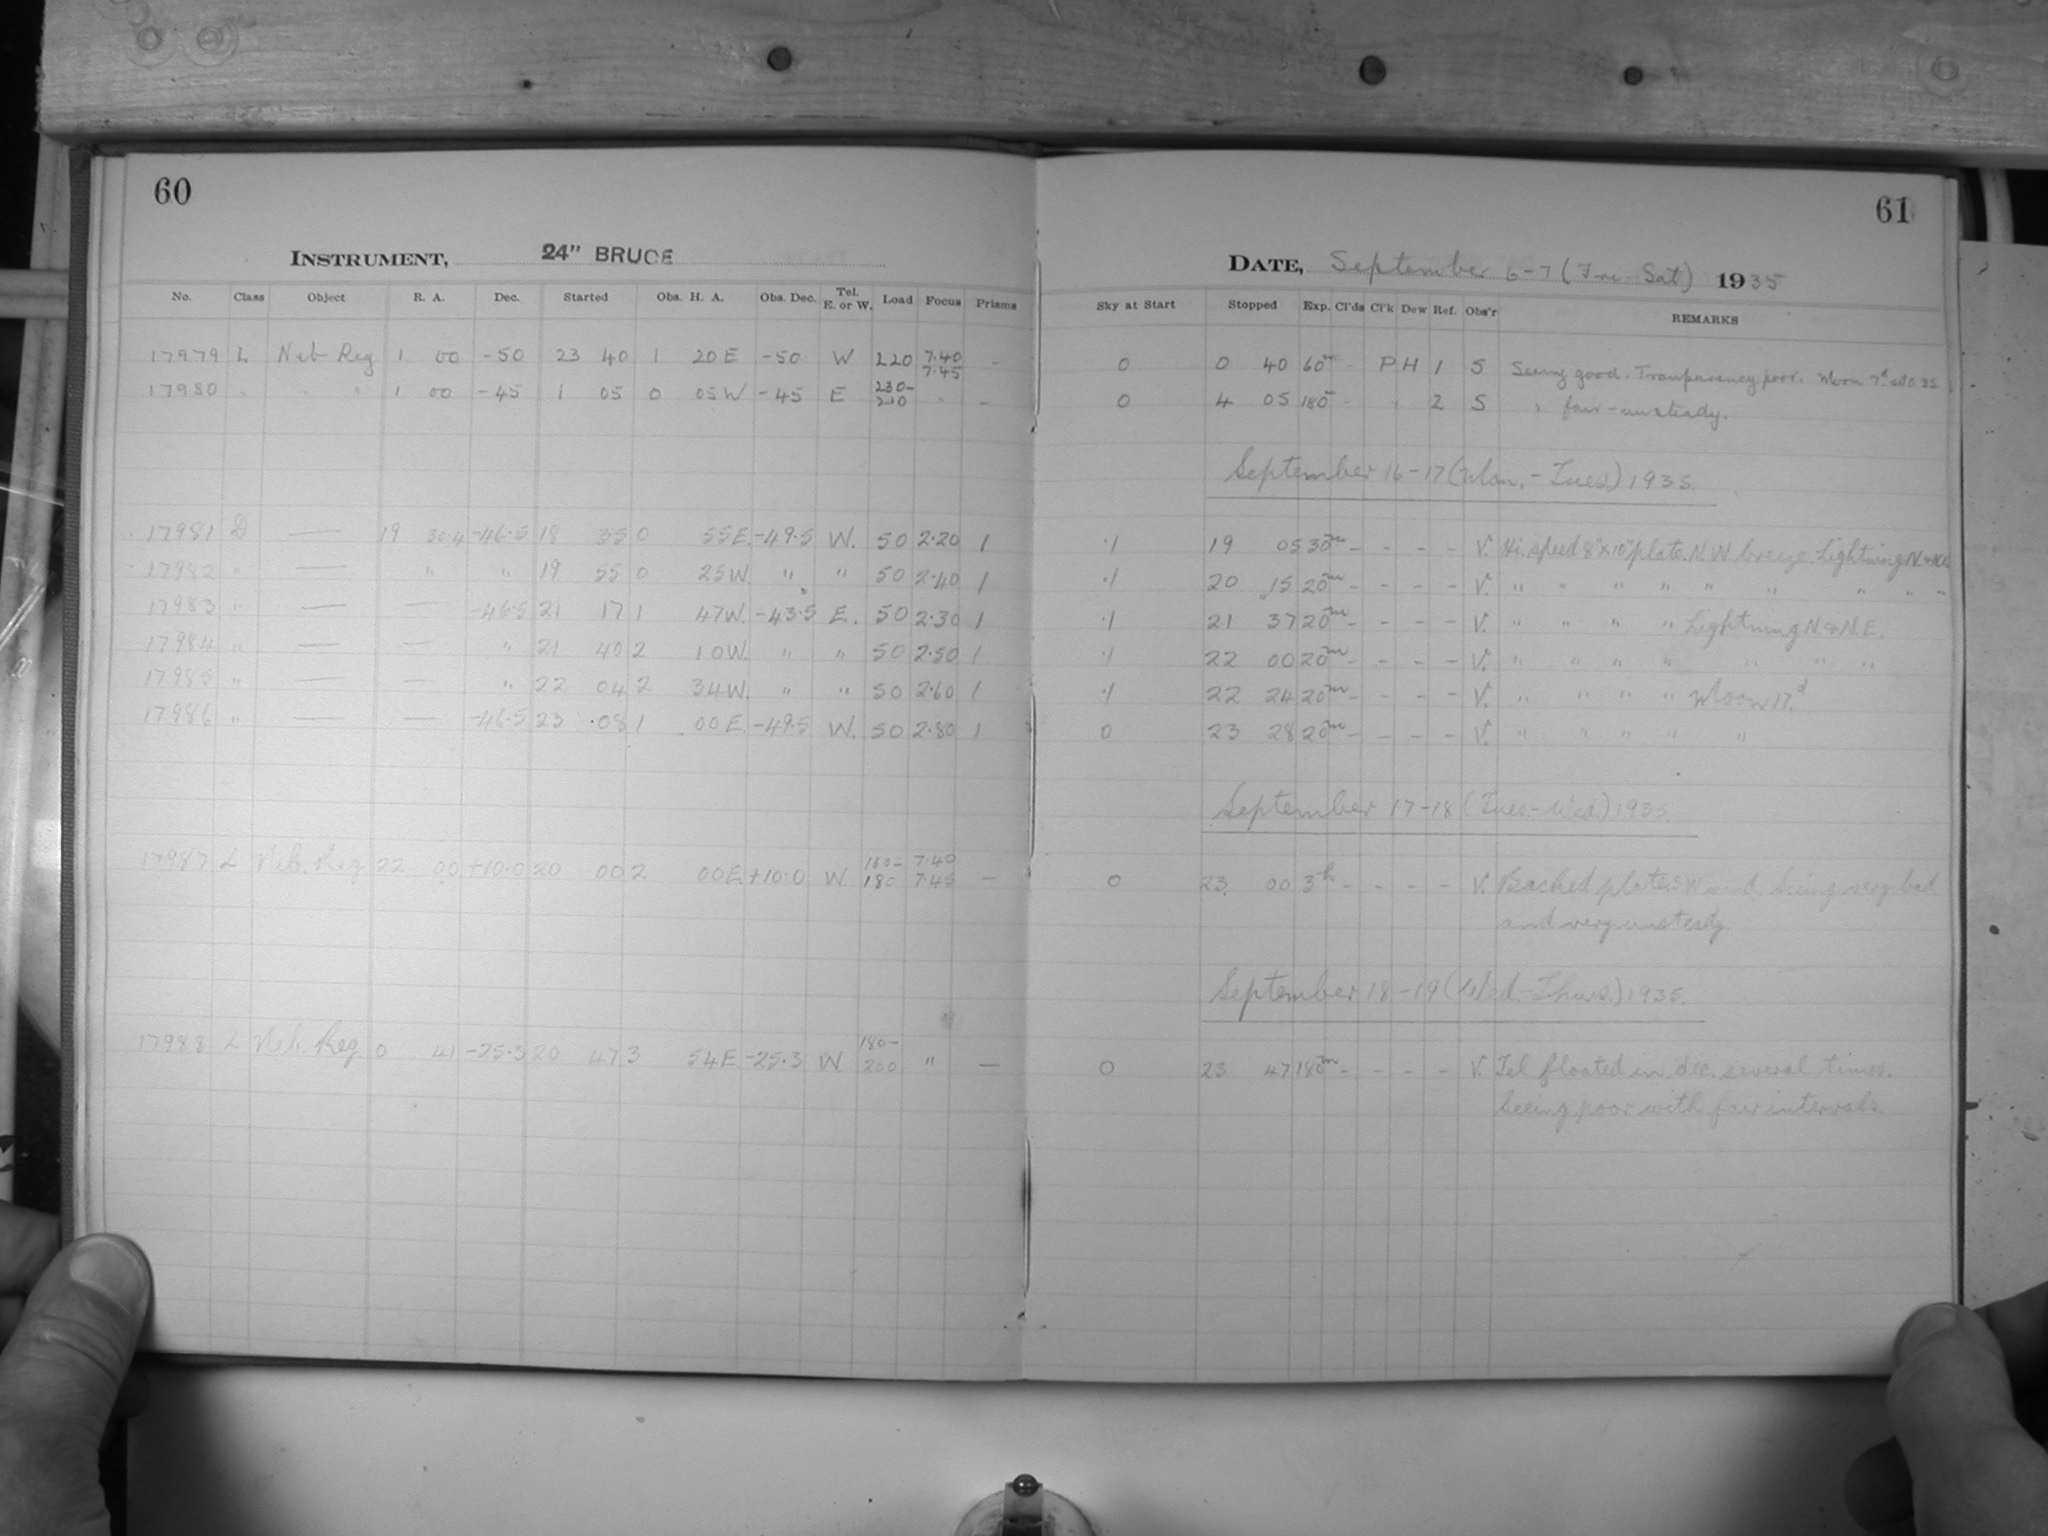 60
INSTRUMENT, 24" BRUCE
No. Class Object R. A. Dec. Started Obs. H. A. Obs. Dec. Tel. E. or W. Load Focus Prisms
17979 L Neb Reg 1 00 -50 23 40 1 20 E -50 W 220 7.40 7.45 -
17980 " " " 1 00 -45 1 05 0 05 W -45 E 230- 210 " -
17981 D — 19 30.4 -46.5 18 35 0 55 E. -49.5 W. 50 2.20 1
17982 " — " " 19 55 0 25 W. " " 50 2.40 1
17983 " — — -46.5 21 17 1 47 W. -43.5 E. 50 2.30 1
17984 " — — " 21 40 2 10 W. " " 50 2.50 1
17985 " — — " 22 04 2 34 W. " " 50 2.60 1
17986 " — — -46.5 23 08 1 00 E. -49.5 W. 50 2.80 1
17987 L Neb. Reg 22 00 +10.0 20 00 2 00 E +10.0 W. 160- 180 7.40 7.45 —
17988 L Neb. Reg. 0 41 -25.3 20 47 3 54 E. -25.3 W. 180- 200 " —
61
DATE, September 6-7 (Fri-Sat) 1935
Sky at Start Stopped Exp. Cl'ds Cl'k Dew Ref. Obs'r REMARKS
0 0 40 60m - P H 1 S Seeing good. Transparency poor. Moon 7d set 0 35
0 4 05 180 - " 2 S " fair - unsteady.
September 16-17 (Mon.-Tues.) 1935.
.1 19 05 30m - - - - V. Hi. speed 8"x10" plate. N.W breeze. Lightning N.
.1 20 15 20m - - - - V. " " " " " " " " "
.1 21 37 20m - - - - V. " " " " Lightning N & N.E.
.1 22 00 20m - - - - V. " " " " " " "
.1 22 24 20m - - - - V. " " " " Moon 17.d
0 23 28 20m - - - - V. " " " " "
September 17-18 (Tues.-Wed.) 1935.
0 23. 00 3h - - - - V. Backed plate. S.W wind. Seeing very bad
and very unsteady.
September 18-19 (Wed-Thurs.) 1935.
0 23 47 180m - - - - V. Tel floated in dec. several times.
Seeing poor with fair intervals.